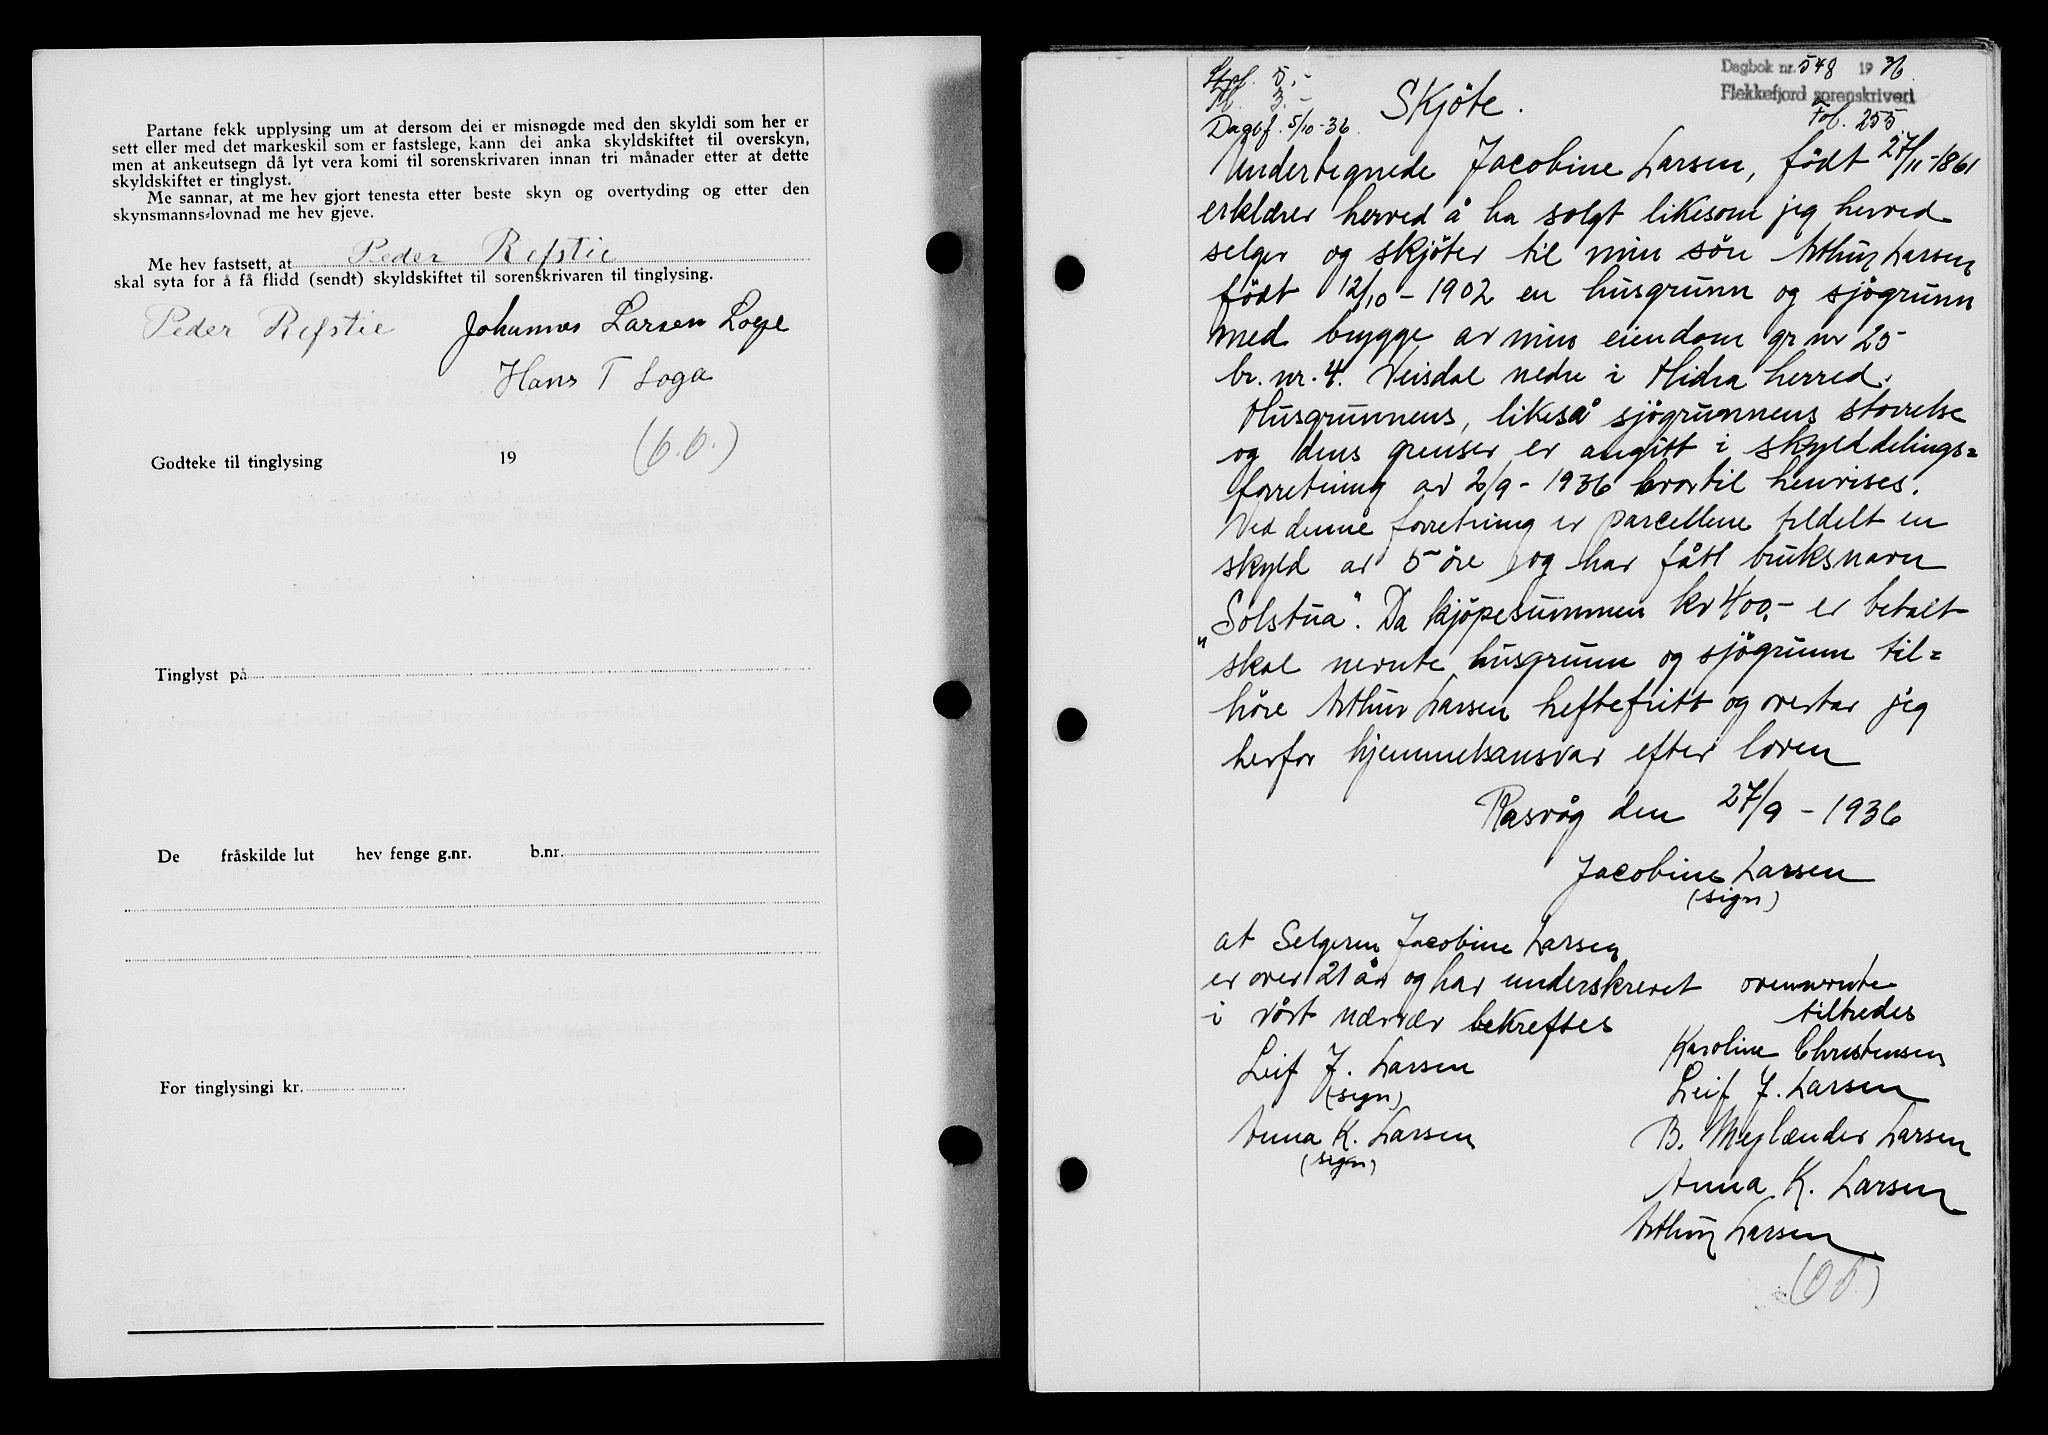 Partane fekk upplysing um at dersom dei er misnøgde med den skyldi som her er
sett eller med det markeskil som er fastslege, kann dei anka skyldskiftet til overskyn,
men at ankeutsegn då lyt vera komi til sorenskrivaren innan tri månader etter at dette
skyldskiftet er tinglyst.
Me sannar, at me hev gjort tenesta etter beste skyn og overtyding og etter den
skynsmanns-lovnad me hev gjeve.
Me hev fastsett, at Peder Refstie
skal syta for å få flidd (sendt) skyldskiftet til sorenskrivaren til tinglysing.
Peder Refstie Johannes Larsen Loge
Hans T Loga
(O.O.)
Godteke til tinglysing 19
Tinglyst på
De fråskilde lut hev fenge g.nr. b.nr.
For tinglysingi kr.
Stpl. 5,-
Tl. 3.-
Dagbf. 5/10-36
Skjöte.
Dagbok nr. 548 1936
Flekkefjord sorenskriveri
Fol. 255
Undertegnede Jacobine Larsen, födt 27/11-1861
erklærer herved å ha solgt likesom jeg herved
selger og skjöter til min sön Arthur Larsen
födt 12/10-1902 en husgrunn og sjögrunn
med brygge av min eiendom gr nr 25
br. nr. 4. Veisdal nedre i Hidra herred.
Husgrunnens, likeså sjögrunnens storrelse
og dens grenser er angitt i skylddelings=
forretning av 2/9-1936 hvortil henvises.
Ved denne forretning er parcellene tildelt en
skyld av 5 öre og har fått bruksnavn
„Solstua". Da kjöpesummen kr 400,- er betalt
skal nevnte husgrunn og sjögrunn til=
höre Arthur Larsen heftefritt og overtar jeg
herfor hjemmelsansvar efter loven
Rasvåg den 27/9-1936
Jacobine Larsen
(sign)
at Selgeren Jacobine Larsen
er over 21 år og har underskrevet
i vårt nærvær bekreftes
Leif J. Larsen
(sign)
Anna K. Larsen
(sign)
ovennevnte
tiltredes
Karoline Christensen
Leif J. Larsen
B. Meylænder Larsen
Anna K. Larsen
Arthur Larsen
(O.O.)